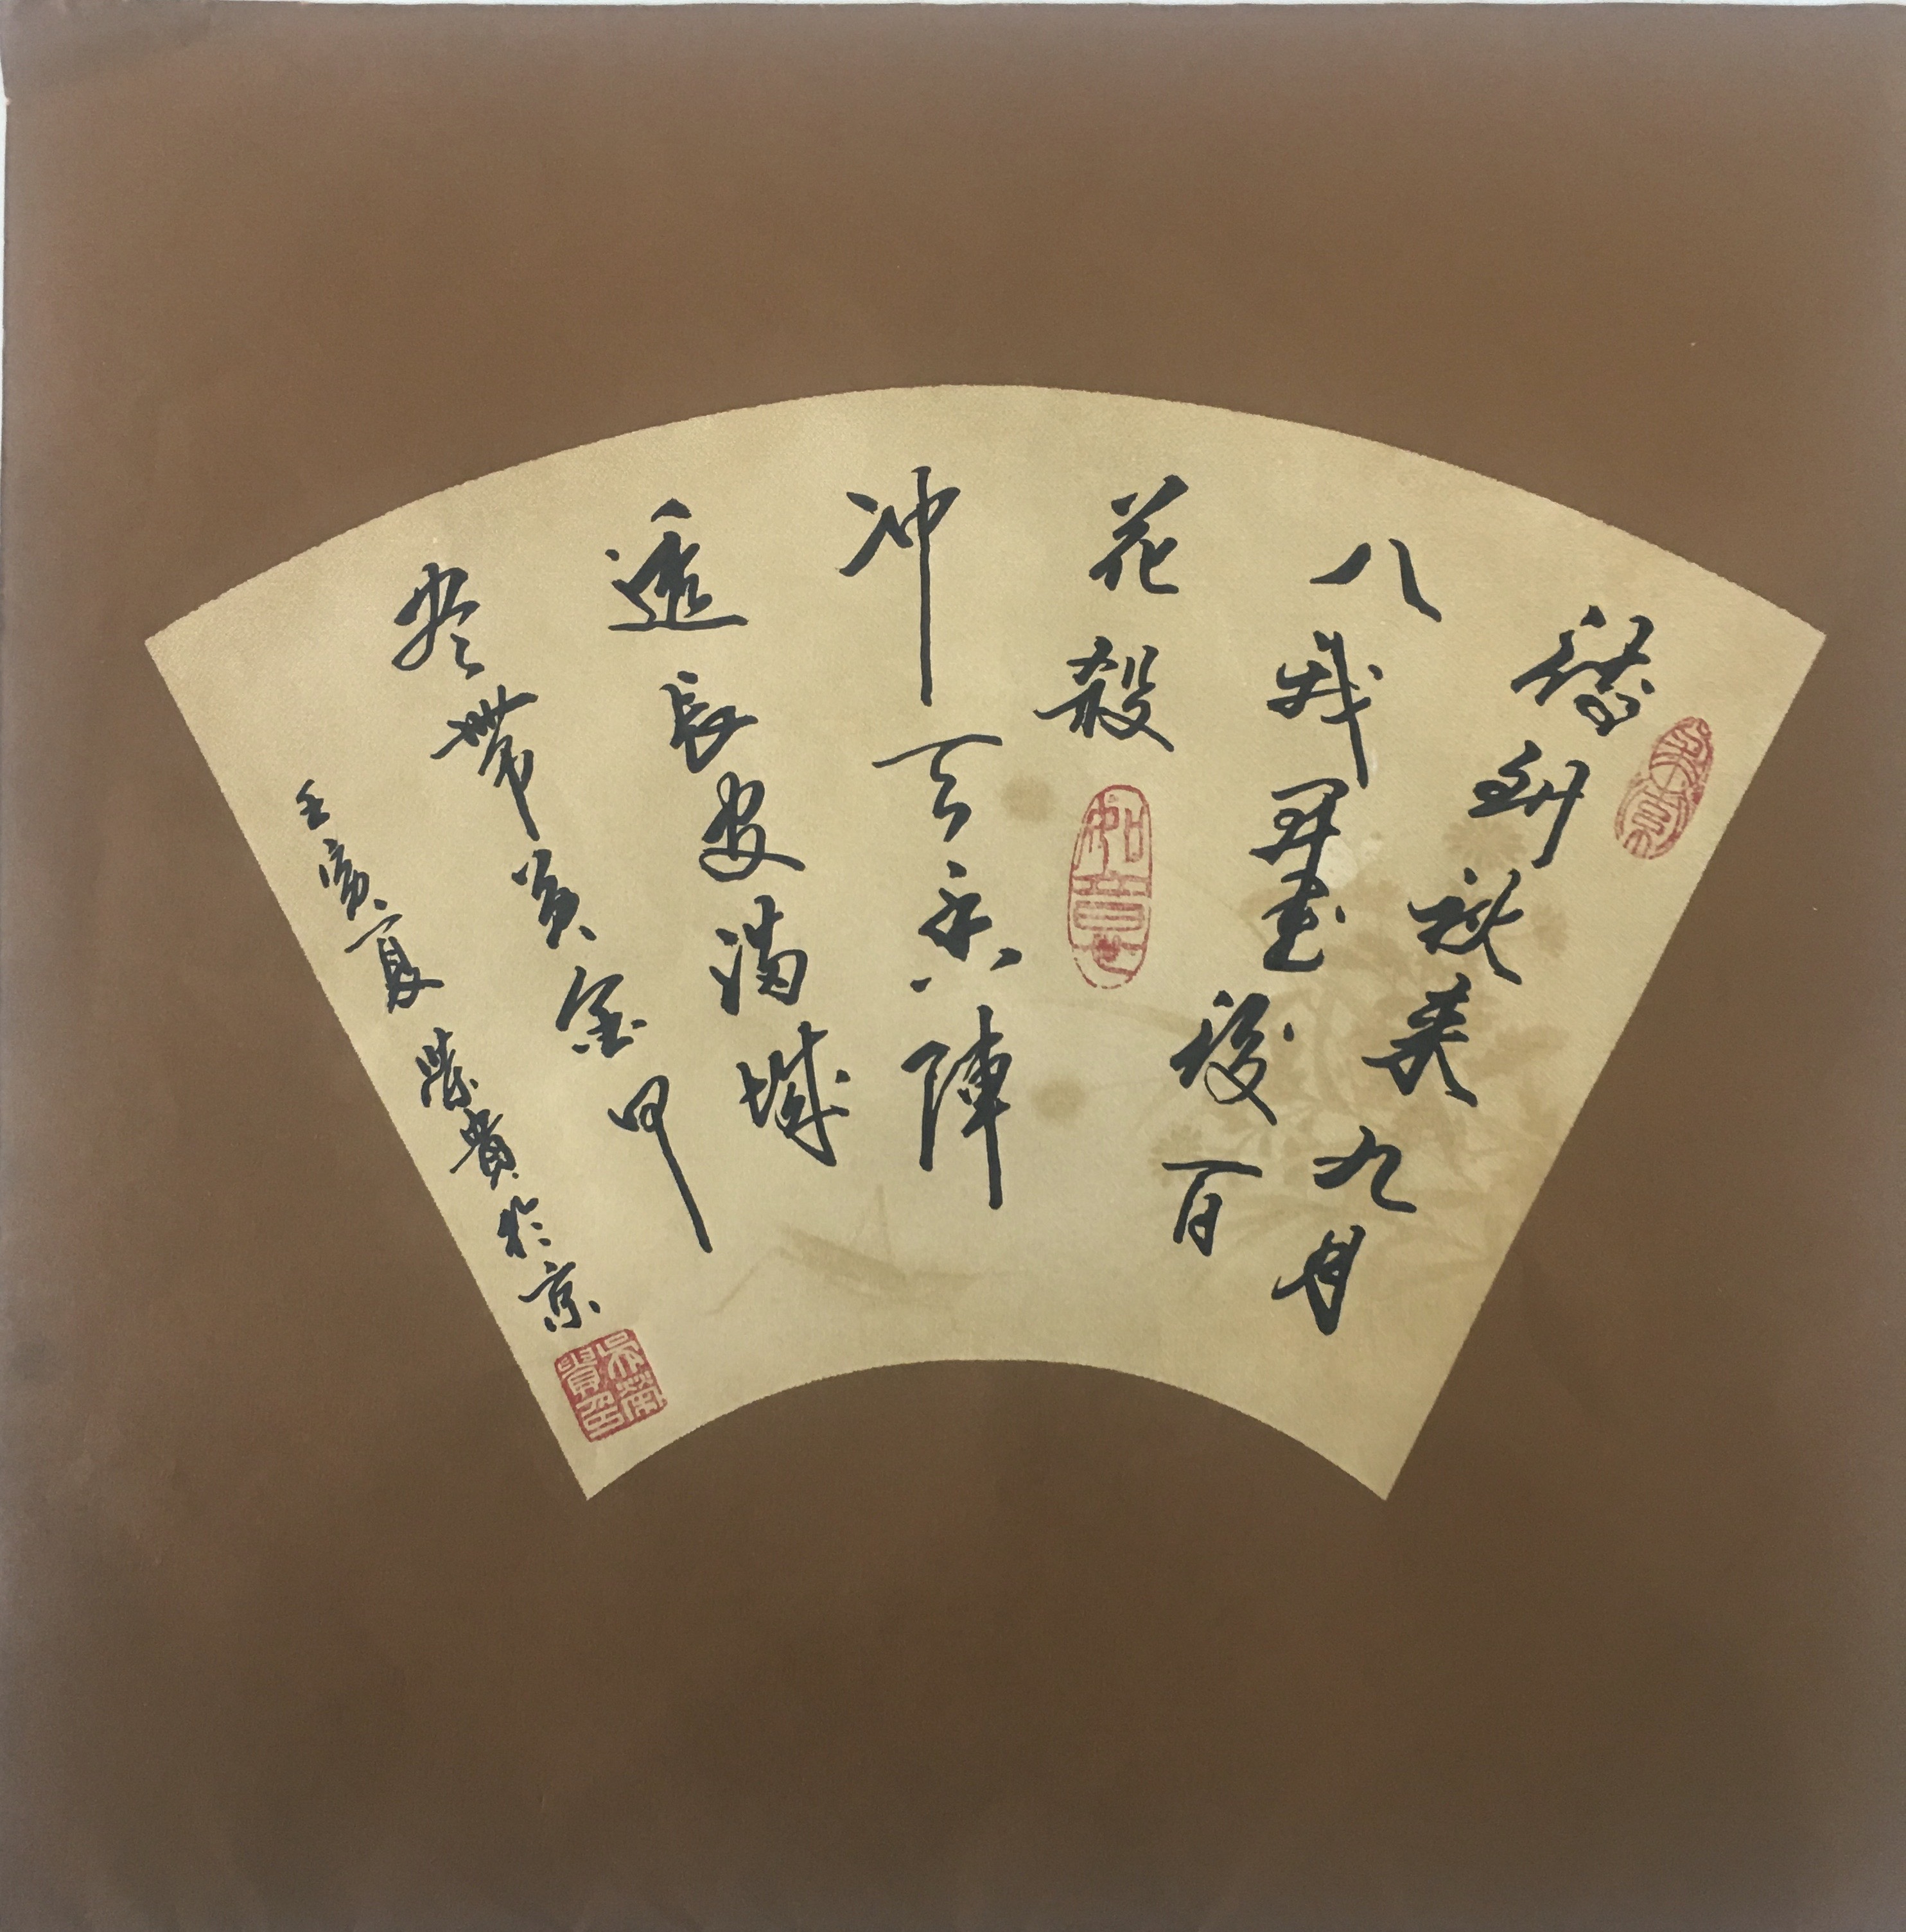 待到秋来九月
八我花开尽後百
花殺
冲天香陣
透長安满城
尽带黄金甲
壬寅夏 荣贵於京
如意